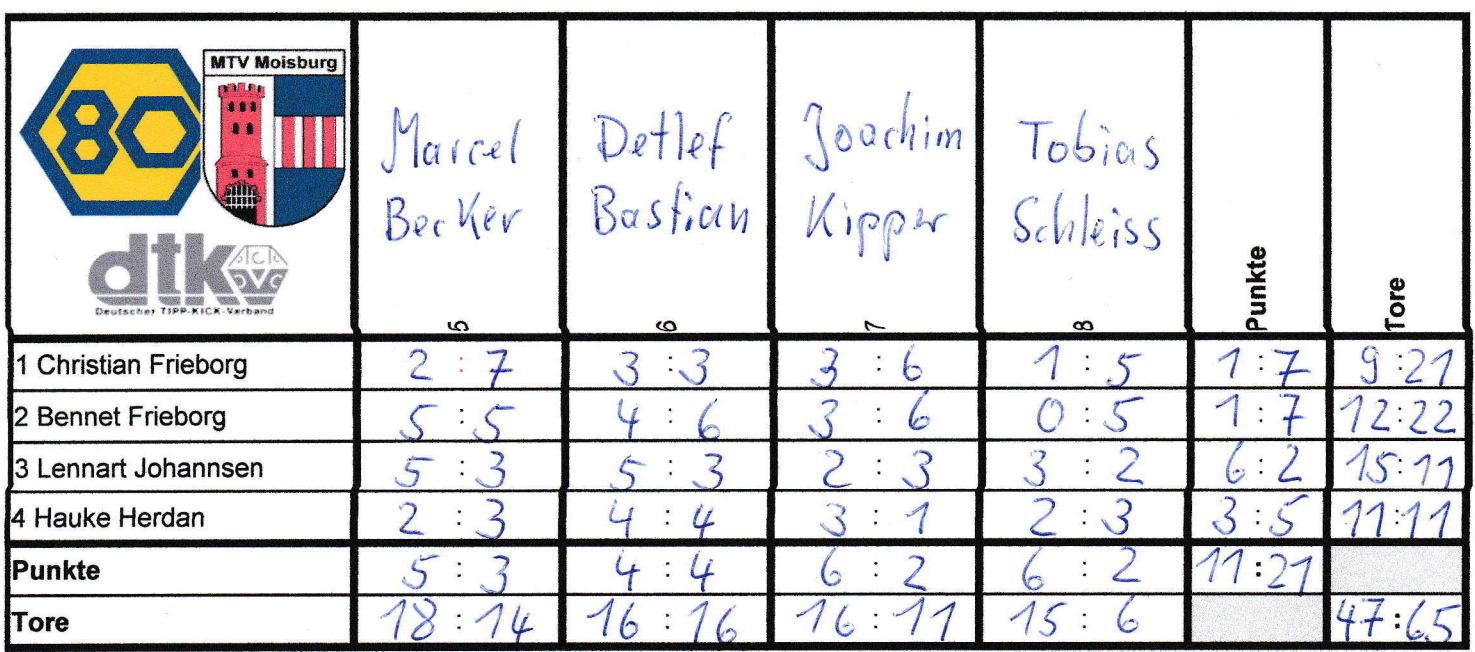 80
MTV Moisburg
dtkv
Deutscher TIPP-KICK-Verband
Marcel Becker 5
Detlef Bastian 6
Joachim Kipper 7
Tobias Schleiss 8
Punkte
Tore
1 Christian Frieborg 2 : 7 3 : 3 3 : 6 1 : 5 1 : 7 9 : 21
2 Bennet Frieborg 5 : 5 4 : 6 3 : 6 0 : 5 1 : 7 12 : 22
3 Lennart Johannsen 5 : 3 5 : 3 2 : 3 3 : 2 6 : 2 15 : 11
4 Hauke Herdan 2 : 3 4 : 4 3 : 1 2 : 3 3 : 5 11 : 11
Punkte 5 : 3 4 : 4 6 : 2 6 : 2 11 : 21
Tore 18 : 14 16 : 16 16 : 11 15 : 6 47 : 65